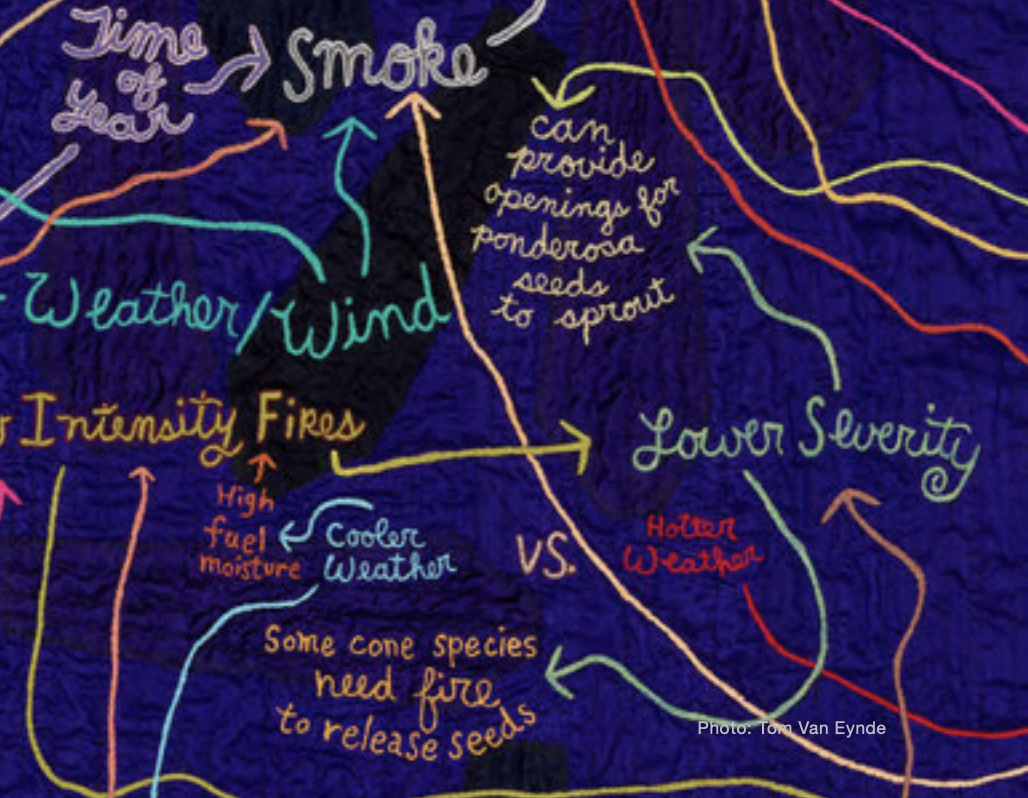 Time
of
Year
Smoke
can
provide
openings for
ponderosa
seeds
to sprout
Weather/Wind
Intensity Fires
Lower Severity
High
fuel
moisture
Cooler
Weather
VS.
Hotter
Weather
Some cone species
need fire
to release seeds
Photo: Tom Van Eynde